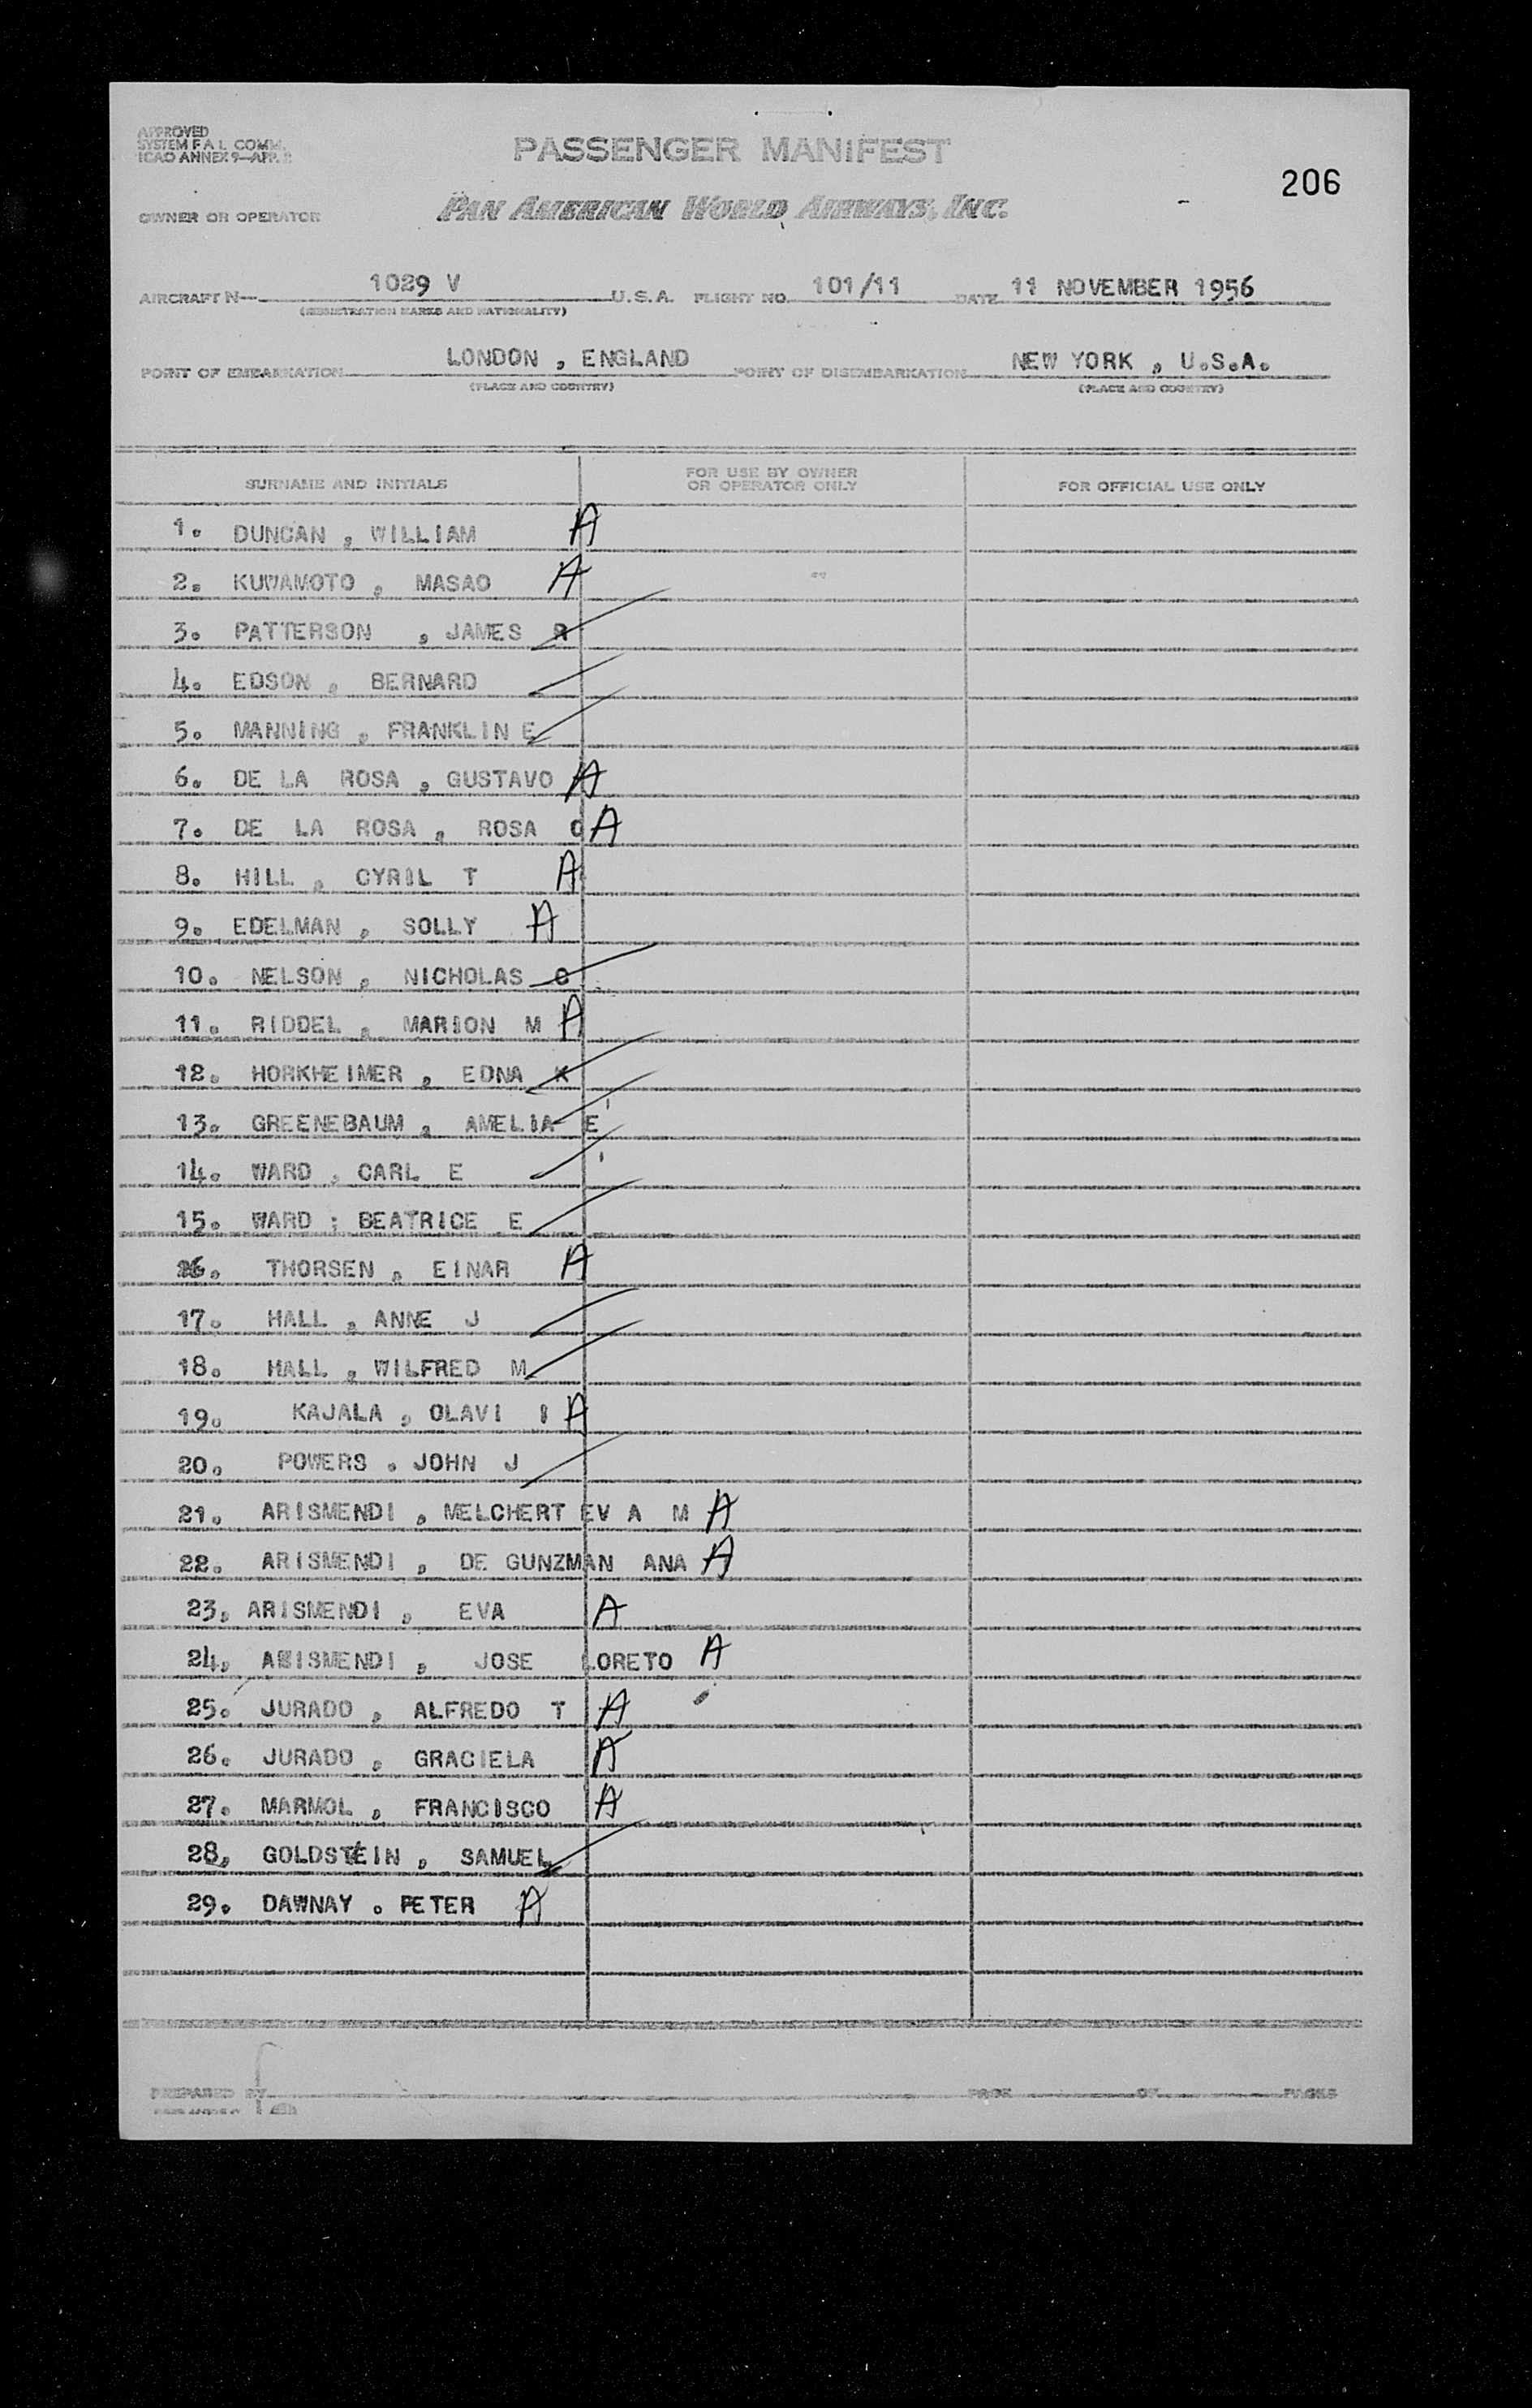 APPROVED
SYSTEM F A L COMM.
ICAO ANNEX 9—APP. 2
PASSENGER MANIFEST
206
OWNER OR OPERATOR PAN AMERICAN WORLD AIRWAYS, INC.
AIRCRAFT N— 1029 V U.S.A. FLIGHT NO. 101/11 DATE 11 NOVEMBER 1956
(REGISTRATION MARKS AND NATIONALITY)
POINT OF EMBARKATION LONDON , ENGLAND POINT OF DISEMBARKATION NEW YORK , U.S.A.
(PLACE AND COUNTRY) (PLACE AND COUNTRY)
SURNAME AND INITIALS FOR USE BY OWNER OR OPERATOR ONLY FOR OFFICIAL USE ONLY
1. DUNCAN , WILLIAM A
2. KUWAMOTO , MASAO A
3. PATTERSON , JAMES R
4. EDSON , BERNARD
5. MANNING , FRANKLIN E
6. DE LA ROSA , GUSTAVO A
7. DE LA ROSA , ROSA O A
8. HILL , CYRIL T A
9. EDELMAN , SOLLY A
10. NELSON , NICHOLAS C
11. RIDDEL , MARION M A
12. HORKHEIMER , EDNA K
13. GREENEBAUM , AMELIA E
14. WARD , CARL E
15. WARD ; BEATRICE E
16. THORSEN , EINAR A
17. HALL , ANNE J
18. HALL , WILFRED M
19. KAJALA , OLAVI I A
20. POWERS . JOHN J
21. ARISMENDI , MELCHERT EV A M A
22. ARISMENDI , DE GUNZMAN ANA A
23, ARISMENDI , EVA A
24, ARISMENDI , JOSE LORETO A
25. JURADO , ALFREDO T A
26. JURADO , GRACIELA A
27. MARMOL , FRANCISCO A
28, GOLDSTEIN , SAMUEL
29. DAWNAY . PETER A
PREPARED BY PAGE OF PAGES